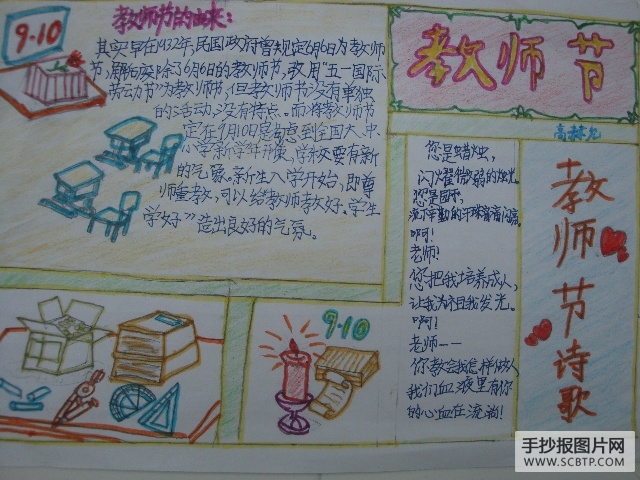 9·10
教师节的由来:
其实早在1932年,民国政府曾规定6月6日为教师
节,解放后废除了6月6日的教师节,改用“五一国际
劳动节”为教师节,但教师节没有单独
的活动,没有特点。而将教师节
定在9月10日是考虑到全国大、中
小学新学年开始,学校要有新
的气氛。新生入学开始,即尊
师重教,可以给教师教好、学生
学好”造出良好的气氛。
教师节
教师节诗歌
您是蜡烛,
闪耀着微弱的烛光。
您是园丁,
啊!
老师!
您把我培养成人,
让我为祖国发光。
啊!
老师——
你教会我怎样做人
我们血液里有你
的心血在流淌!
9·10
手抄报图片网
WWW.SCBTP.COM